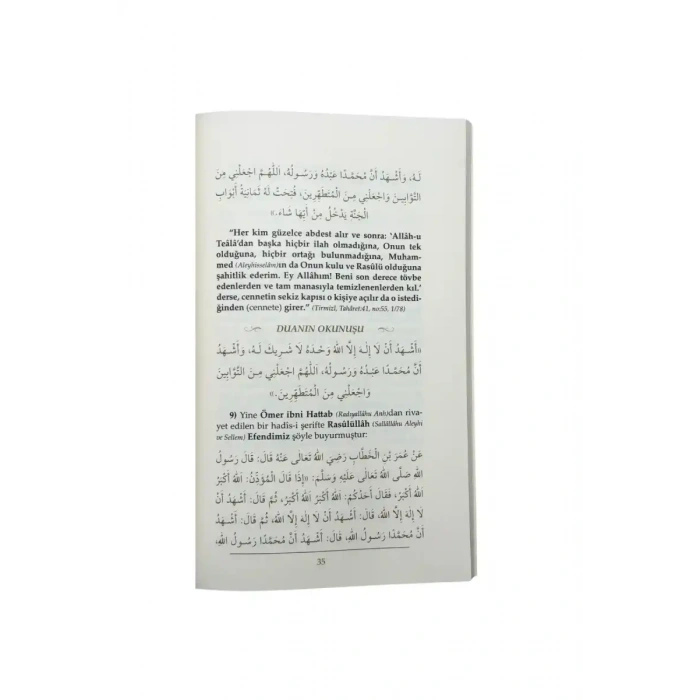 لَهُ، وَأَشْهَدُ أَنَّ مُحَمَّدًا عَبْدُهُ وَرَسُولُهُ، اَللّٰهُمَّ اجْعَلْنِي مِنَ
التَّوَّابِينَ وَاجْعَلْنِي مِنَ الْمُتَطَهِّرِينَ، فُتِحَتْ لَهُ ثَمَانِيَةُ أَبْوَابِ
الْجَنَّةِ يَدْخُلُ مِنْ أَيِّهَا شَاءَ.»
“Her kim güzelce abdest alır ve sonra: ‘Allâh-u
Teâlâ’dan başka hiçbir ilah olmadığına, Onun tek
olduğuna, hiçbir ortağı bulunmadığına, Muham-
med (Aleyhisselâm)ın da Onun kulu ve Rasûlü olduğuna
şahitlik ederim. Ey Allâhım! Beni son derece tövbe
edenlerden ve tam manasıyla temizlenenlerden kıl.’
derse, cennetin sekiz kapısı o kişiye açılır da o istedi-
ğinden (cennete) girer.” (Tirmizî, Tahâret:41, no:55, 1/78)
DUANIN OKUNUŞU
«أَشْهَدُ أَنْ لَا إِلٰهَ إِلَّا اللّٰهُ وَحْدَهُ لَا شَرِيكَ لَهُ، وَأَشْهَدُ
أَنَّ مُحَمَّدًا عَبْدُهُ وَرَسُولُهُ، اَللّٰهُمَّ اجْعَلْنِي مِنَ التَّوَّابِينَ
وَاجْعَلْنِي مِنَ الْمُتَطَهِّرِينَ.»
9) Yine Ömer ibni Hattab (Radıyallâhu Anh)dan riva-
yet edilen bir hadîs-i şerifte Rasûlüllâh (Sallâllâhu Aleyhi
ve Sellem) Efendimiz şöyle buyurmuştur:
عَنْ عُمَرَ بْنِ الْخَطَّابِ رَضِيَ اللّٰهُ تَعَالَى عَنْهُ قَالَ: قَالَ رَسُولُ
اللّٰهِ صَلَّى اللّٰهُ تَعَالَى عَلَيْهِ وَسَلَّمَ: «إِذَا قَالَ الْمُؤَذِّنُ: اَللّٰهُ أَكْبَرُ
اَللّٰهُ أَكْبَرُ، فَقَالَ أَحَدُكُمْ: اَللّٰهُ أَكْبَرُ اَللّٰهُ أَكْبَرُ، ثُمَّ قَالَ: أَشْهَدُ أَنْ
لَا إِلٰهَ إِلَّا اللّٰهُ، قَالَ: أَشْهَدُ أَنْ لَا إِلٰهَ إِلَّا اللّٰهُ، ثُمَّ قَالَ: أَشْهَدُ
أَنَّ مُحَمَّدًا رَسُولُ اللّٰهِ، قَالَ: أَشْهَدُ أَنَّ مُحَمَّدًا رَسُولُ اللّٰهِ،
35